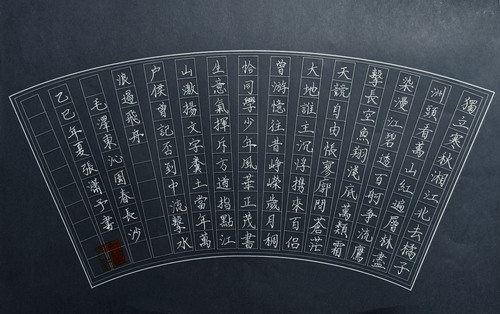 獨立寒秋湘江北去橘子
洲頭看萬山紅遍層林盡
染漫江碧透百舸争流鷹
擊長空魚翔淺底萬類霜
天競自由悵寥廓問蒼茫
大地誰主沉浮携來百侣
曾游憶往昔崢嶸歲月稠
恰同學少年風華正茂書
生意氣揮斥方遒指點江
山激揚文字糞土當年萬
户侯曾記否到中流擊水
浪遏飛舟
毛澤東沁園春長沙
乙巳年夏張瀟予書